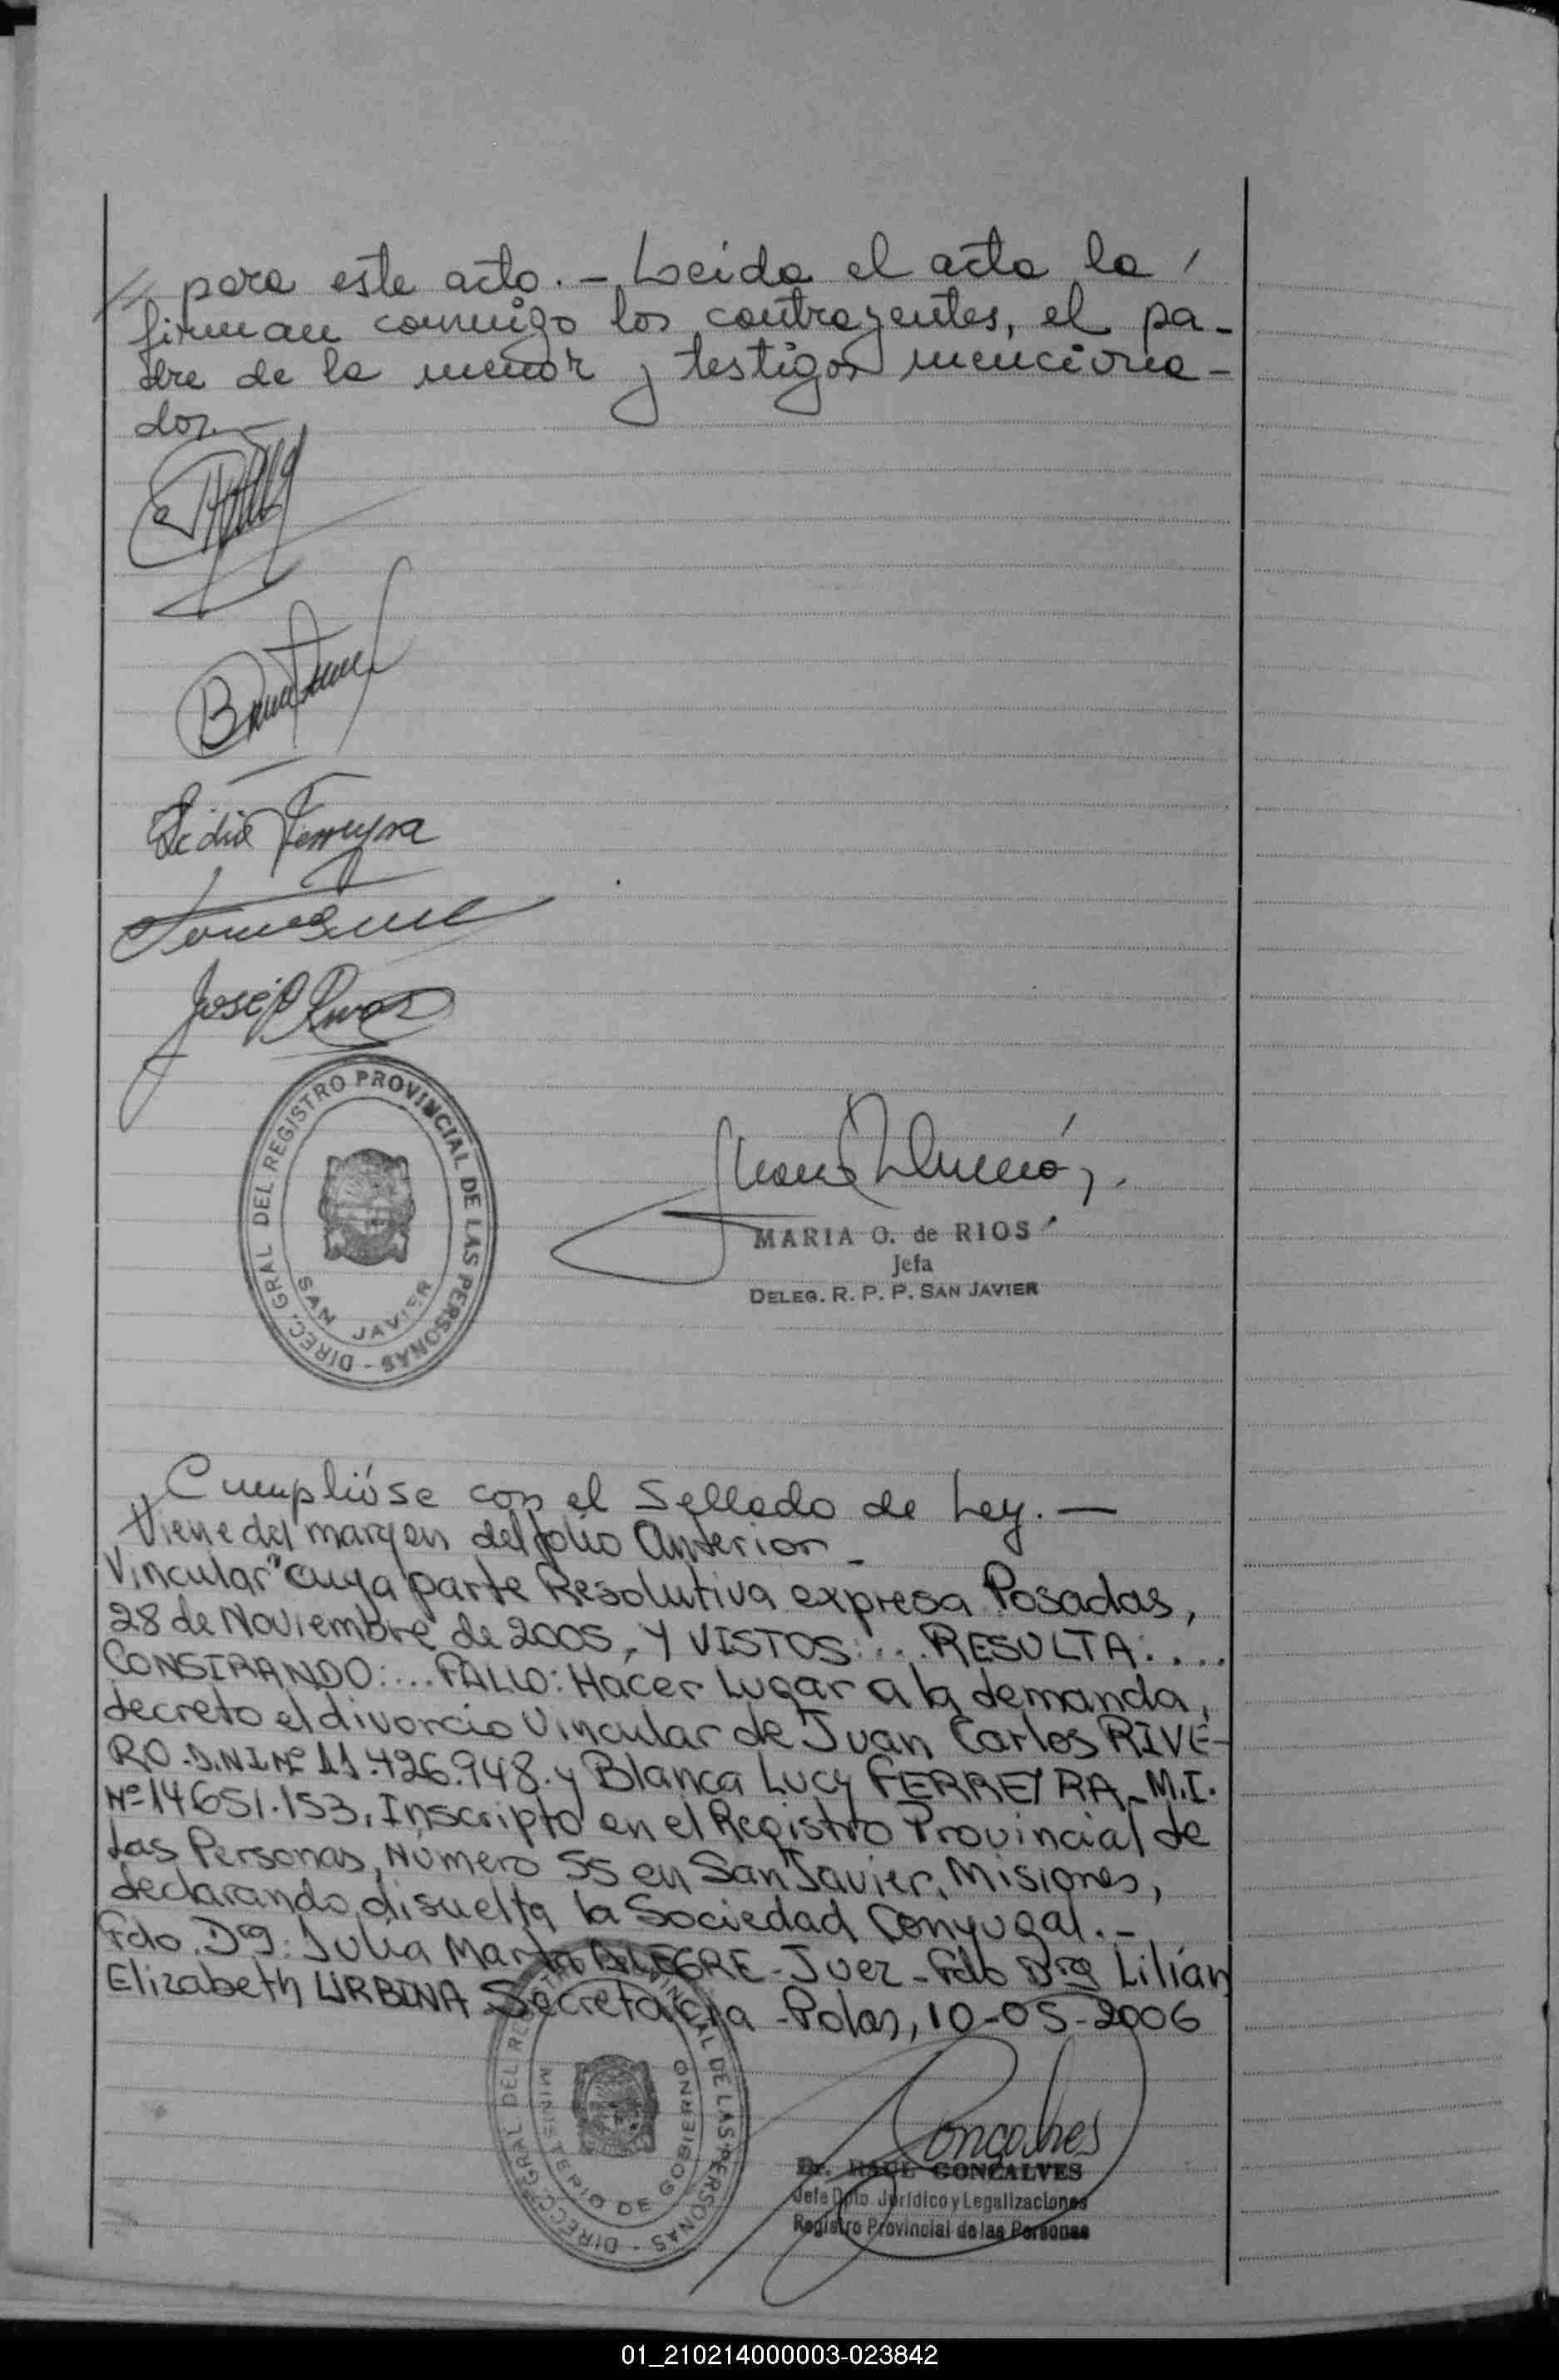 // para este acto. - Leida el acta la /
firman conmigo los contrayentes, el pa-
dre de la menor y testigos menciona-
dos.-
Lidia Ferreyra
José
DIREC. GRAL DEL REGISTRO PROVINCIAL DE LAS PERSONAS -
SAN JAVIER
MARIA O. de RIOS
Jefa
DELEG. R. P. P. SAN JAVIER
Cumplióse con el Sellado de Ley. —
Viene del margen del folio Anterior -
Vincular" cuya parte Resolutiva expresa Posadas,
28 de Noviembre de 2005, Y VISTOS:... RESULTA:....
CONSIRANDO:... FALLO: Hacer Lugar a la demanda,
decreto el divorcio Vincular de Juan Carlos RIVE-
RO - D.N.I Nº 11.426.948. y Blanca Lucy FERREYRA - M.I.
Nº 14651.153, Inscripto en el Registro Provincial de
Las Personas, Número 55 en San Javier, Misiones,
declarando disuelta la Sociedad Conyugal. -
Fdo. Dra: Julia Marta ALEGRE - Juez - Fdo Dra Lilián
Elizabeth URBINA Secretaria - Pdas, 10-05-2006
DIRECC. GRAL DEL REGISTRO PROVINCIAL DE LAS PERSONAS -
MINISTERIO DE GOBIERNO
Gonçalves
Dr. RAUL GONÇALVES
Jefe Dpto. Jurídico y Legalizaciones
Registro Provincial de las Personas
01_210214000003-023842